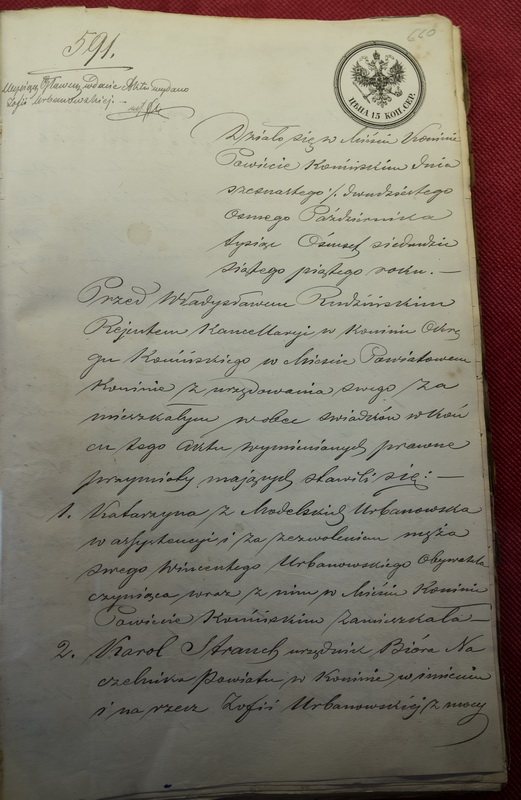 591.
660
wydanie Aktu wydano
Zofii Urbanowskiej.
ЦѢНА 15 КОП. СЕР.
Działo się w Mieście Koninie
Powiecie Konińskim dnia
szesnastego /. dwudziestego
Osmego Października
tysiąc Ośmset siedmdzie
siątego piątego roku. —
Przed Władysławem Rudzińskim
Rejentem Kancellaryi w Koninie Okrę
gu Konińskiego w Mieście Powiatowem
Koninie z urzędowania swego za
mieszkałym w obec świadków w koń
cu tego Aktu wymienionych prawne
przymioty mających stawili się: —
1. Katarzyna z Modelskich Urbanowska
w assystencyi i za zezwoleniem męża
swego Wincentego Urbanowskiego Obywatela
czyniąca wraz z nim w Mieście Koninie
Powiecie Konińskim zamieszkała —
2. Karol Strauch urzędnik Bióra Na
czelnika Powiatu w Koninie w imieniu
i na rzecz Zofii Urbanowskiéj z mocy